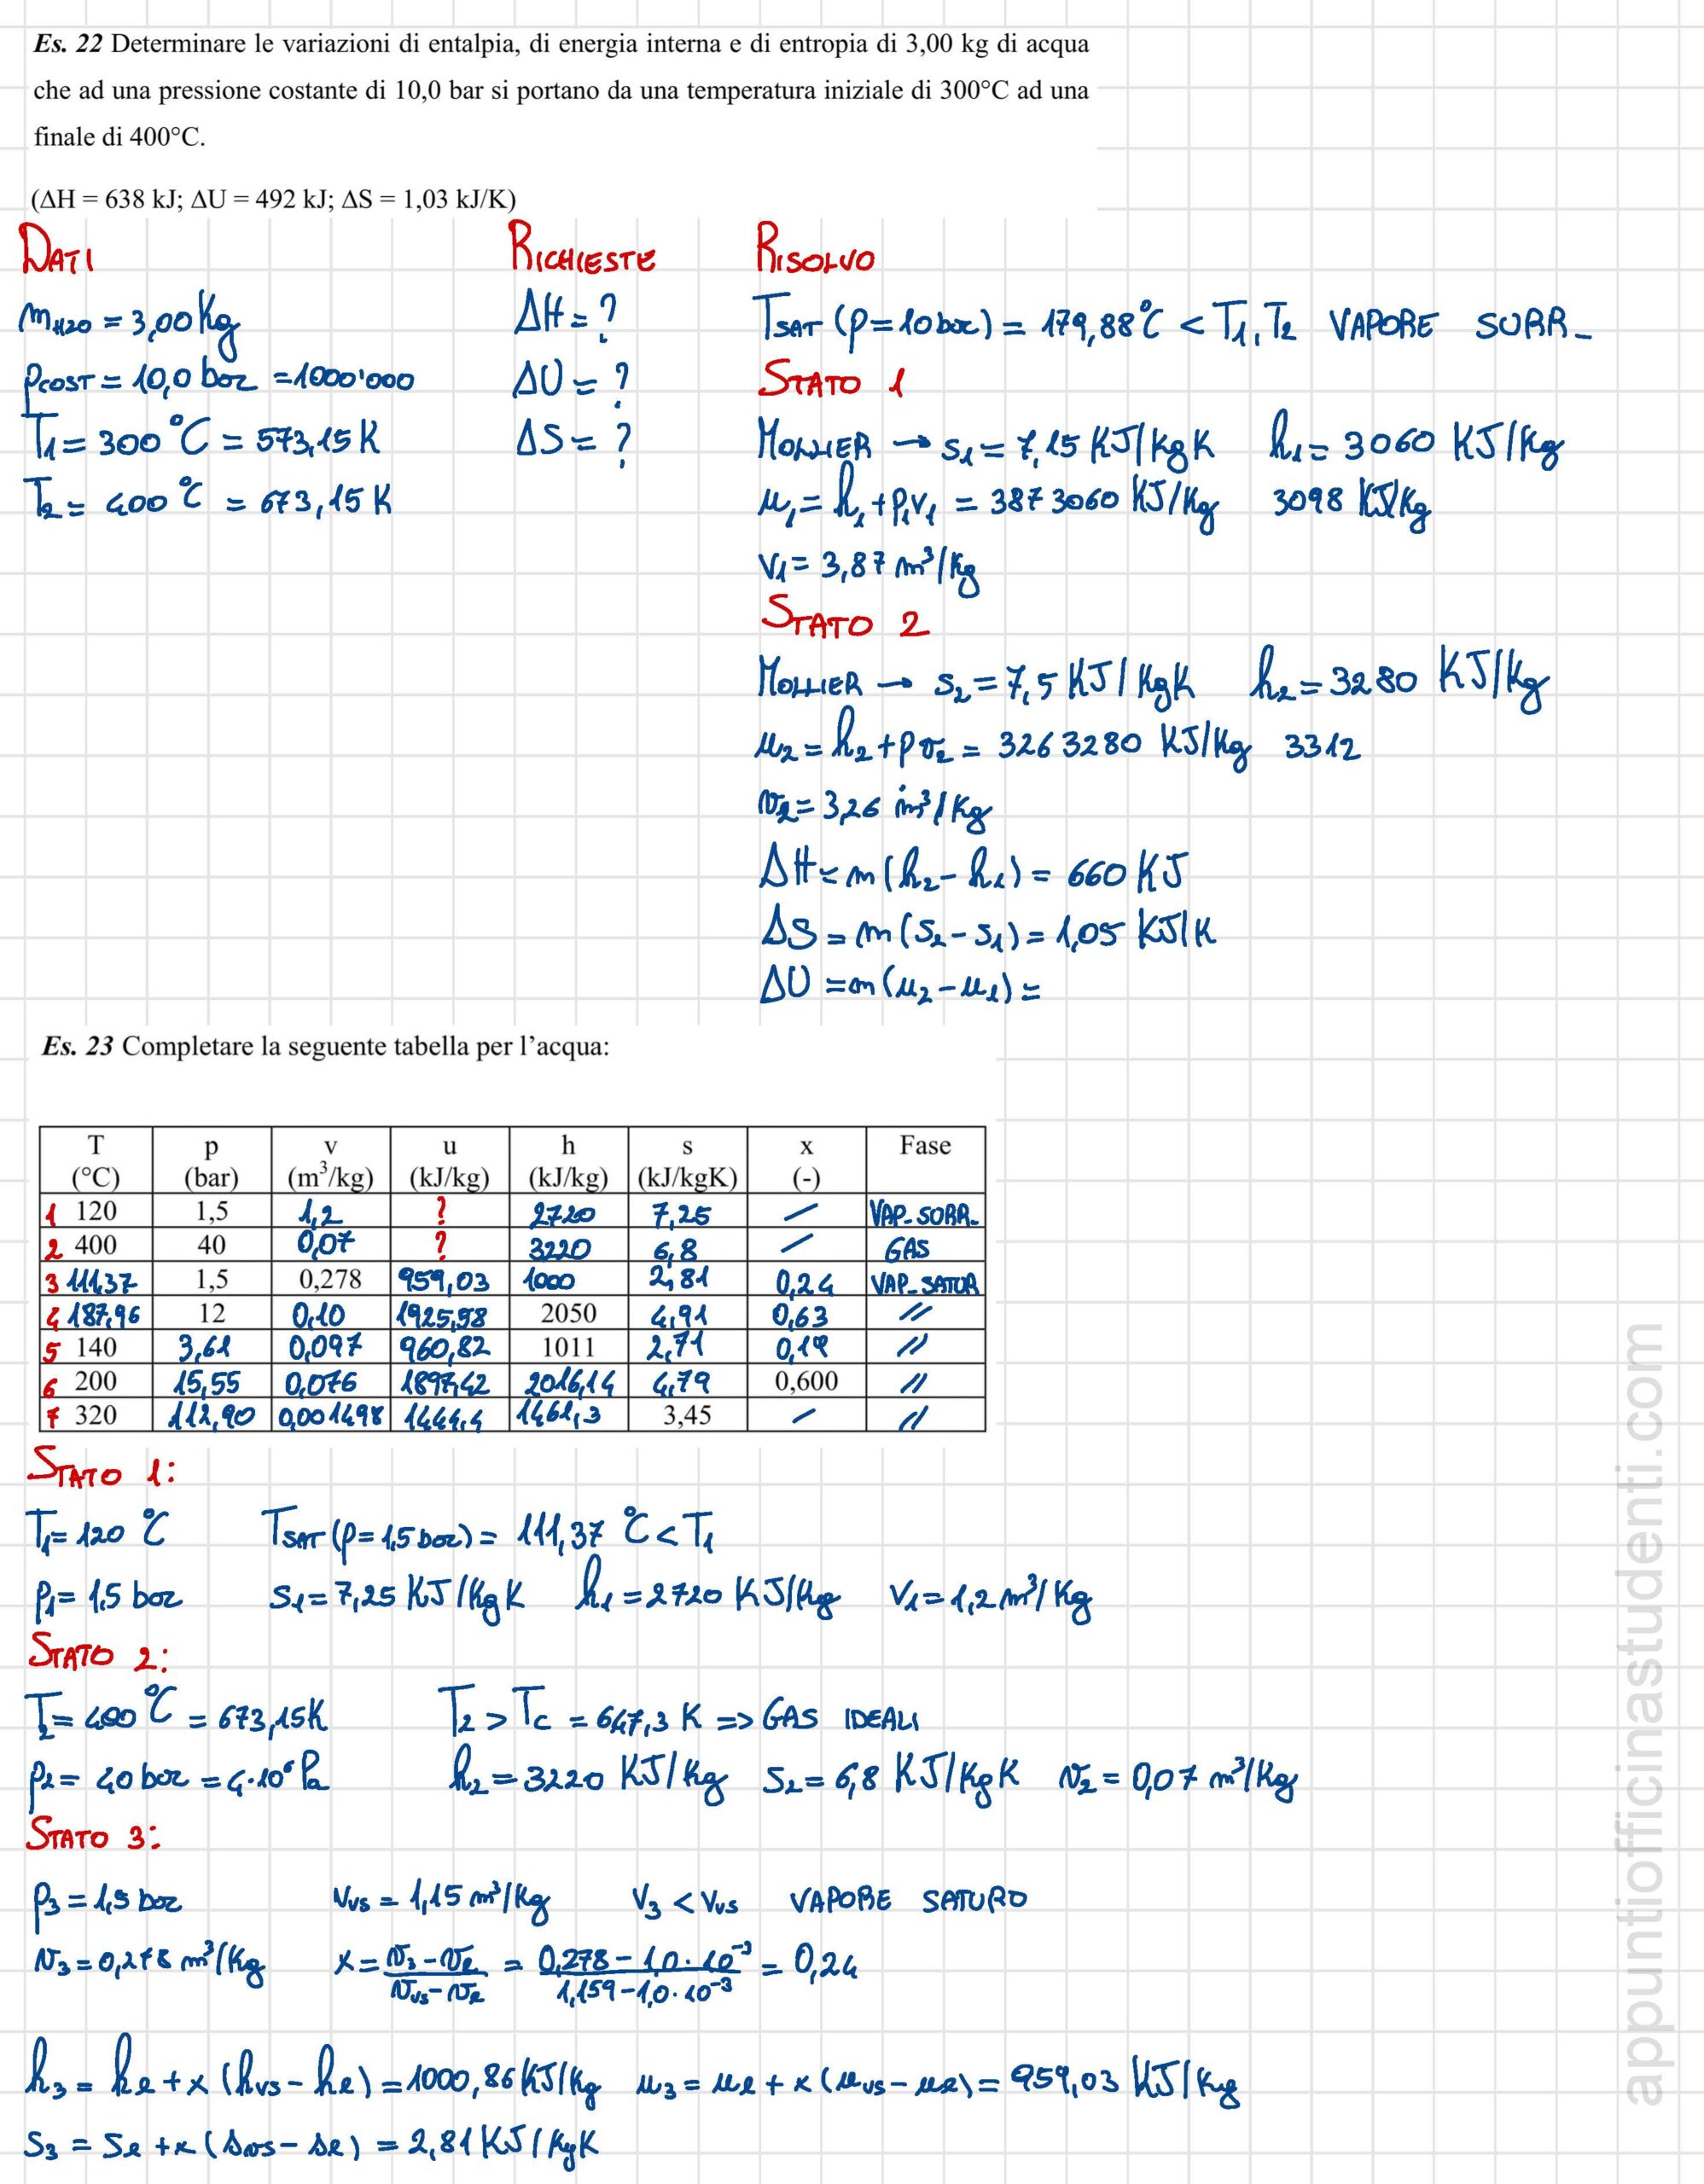 Es. 22 Determinare le variazioni di entalpia, di energia interna e di entropia di 3,00 kg di acqua
che ad una pressione costante di 10,0 bar si portano da una temperatura iniziale di 300°C ad una
finale di 400°C.
(ΔH = 638 kJ; ΔU = 492 kJ; ΔS = 1,03 kJ/K)
DATI RICHIESTE RISOLVO
mH2O = 3,00 Kg ΔH = ? TSAT (p=10 bar) = 179,88°C < T1, T2 VAPORE SURR_
pCOST = 10,0 bar = 1000'000 ΔU = ? STATO 1
T1 = 300 °C = 573,15 K ΔS = ? MOLLIER → s1 = 7,15 KJ/KgK h1 = 3060 KJ/Kg
T2 = 400 °C = 673,15 K u1 = h1 + p1v1 = 3873060 KJ/Kg 3098 KJ/Kg
v1 = 3,87 m³/Kg
STATO 2
MOLLIER → s2 = 7,5 KJ/KgK h2 = 3280 KJ/Kg
u2 = h2 + pv2 = 3263280 KJ/Kg 3312
v2 = 3,26 m³/Kg
ΔH = m(h2 - h1) = 660 KJ
ΔS = m(s2 - s1) = 1,05 KJ/K
ΔU = m(u2 - u1) =
Es. 23 Completare la seguente tabella per l'acqua:
T p v u h s x Fase
(°C) (bar) (m³/kg) (kJ/kg) (kJ/kg) (kJ/kgK) (-)
1 120 1,5 1,2 ? 2720 7,25 / VAP_SURR_
2 400 40 0,07 ? 3220 6,8 / GAS
3 111,37 1,5 0,278 959,03 1000 2,81 0,24 VAP_SATUR
4 187,96 12 0,10 1925,58 2050 4,91 0,63 //
5 140 3,61 0,097 960,82 1011 2,71 0,19 //
6 200 15,55 0,076 1897,42 2016,14 4,79 0,600 //
7 320 112,90 0,001498 1444,4 1461,3 3,45 / //
STATO 1:
T1 = 120 °C TSAT (p = 1,5 bar) = 111,37 °C < T1
p1 = 1,5 bar s1 = 7,25 KJ/KgK h1 = 2720 KJ/Kg v1 = 1,2 m³/Kg
STATO 2:
T2 = 400 °C = 673,15K T2 > Tc = 647,3 K => GAS IDEALI
p2 = 40 bar = 4·10⁶ Pa h2 = 3220 KJ/Kg s2 = 6,8 KJ/KgK v2 = 0,07 m³/Kg
STATO 3:
p3 = 1,5 bar vvs = 1,15 m³/Kg v3 < vvs VAPORE SATURO
v3 = 0,278 m³/Kg x = (v3 - vl)/(vvs - vl) = (0,278 - 1,0·10⁻³)/(1,159 - 1,0·10⁻³) = 0,24
h3 = hl + x (hvs - hl) = 1000,86 KJ/Kg u3 = ul + x (uvs - ul) = 959,03 KJ/Kg
s3 = sl + x (svs - sl) = 2,81 KJ/KgK
appuntiofficinastudenti.com